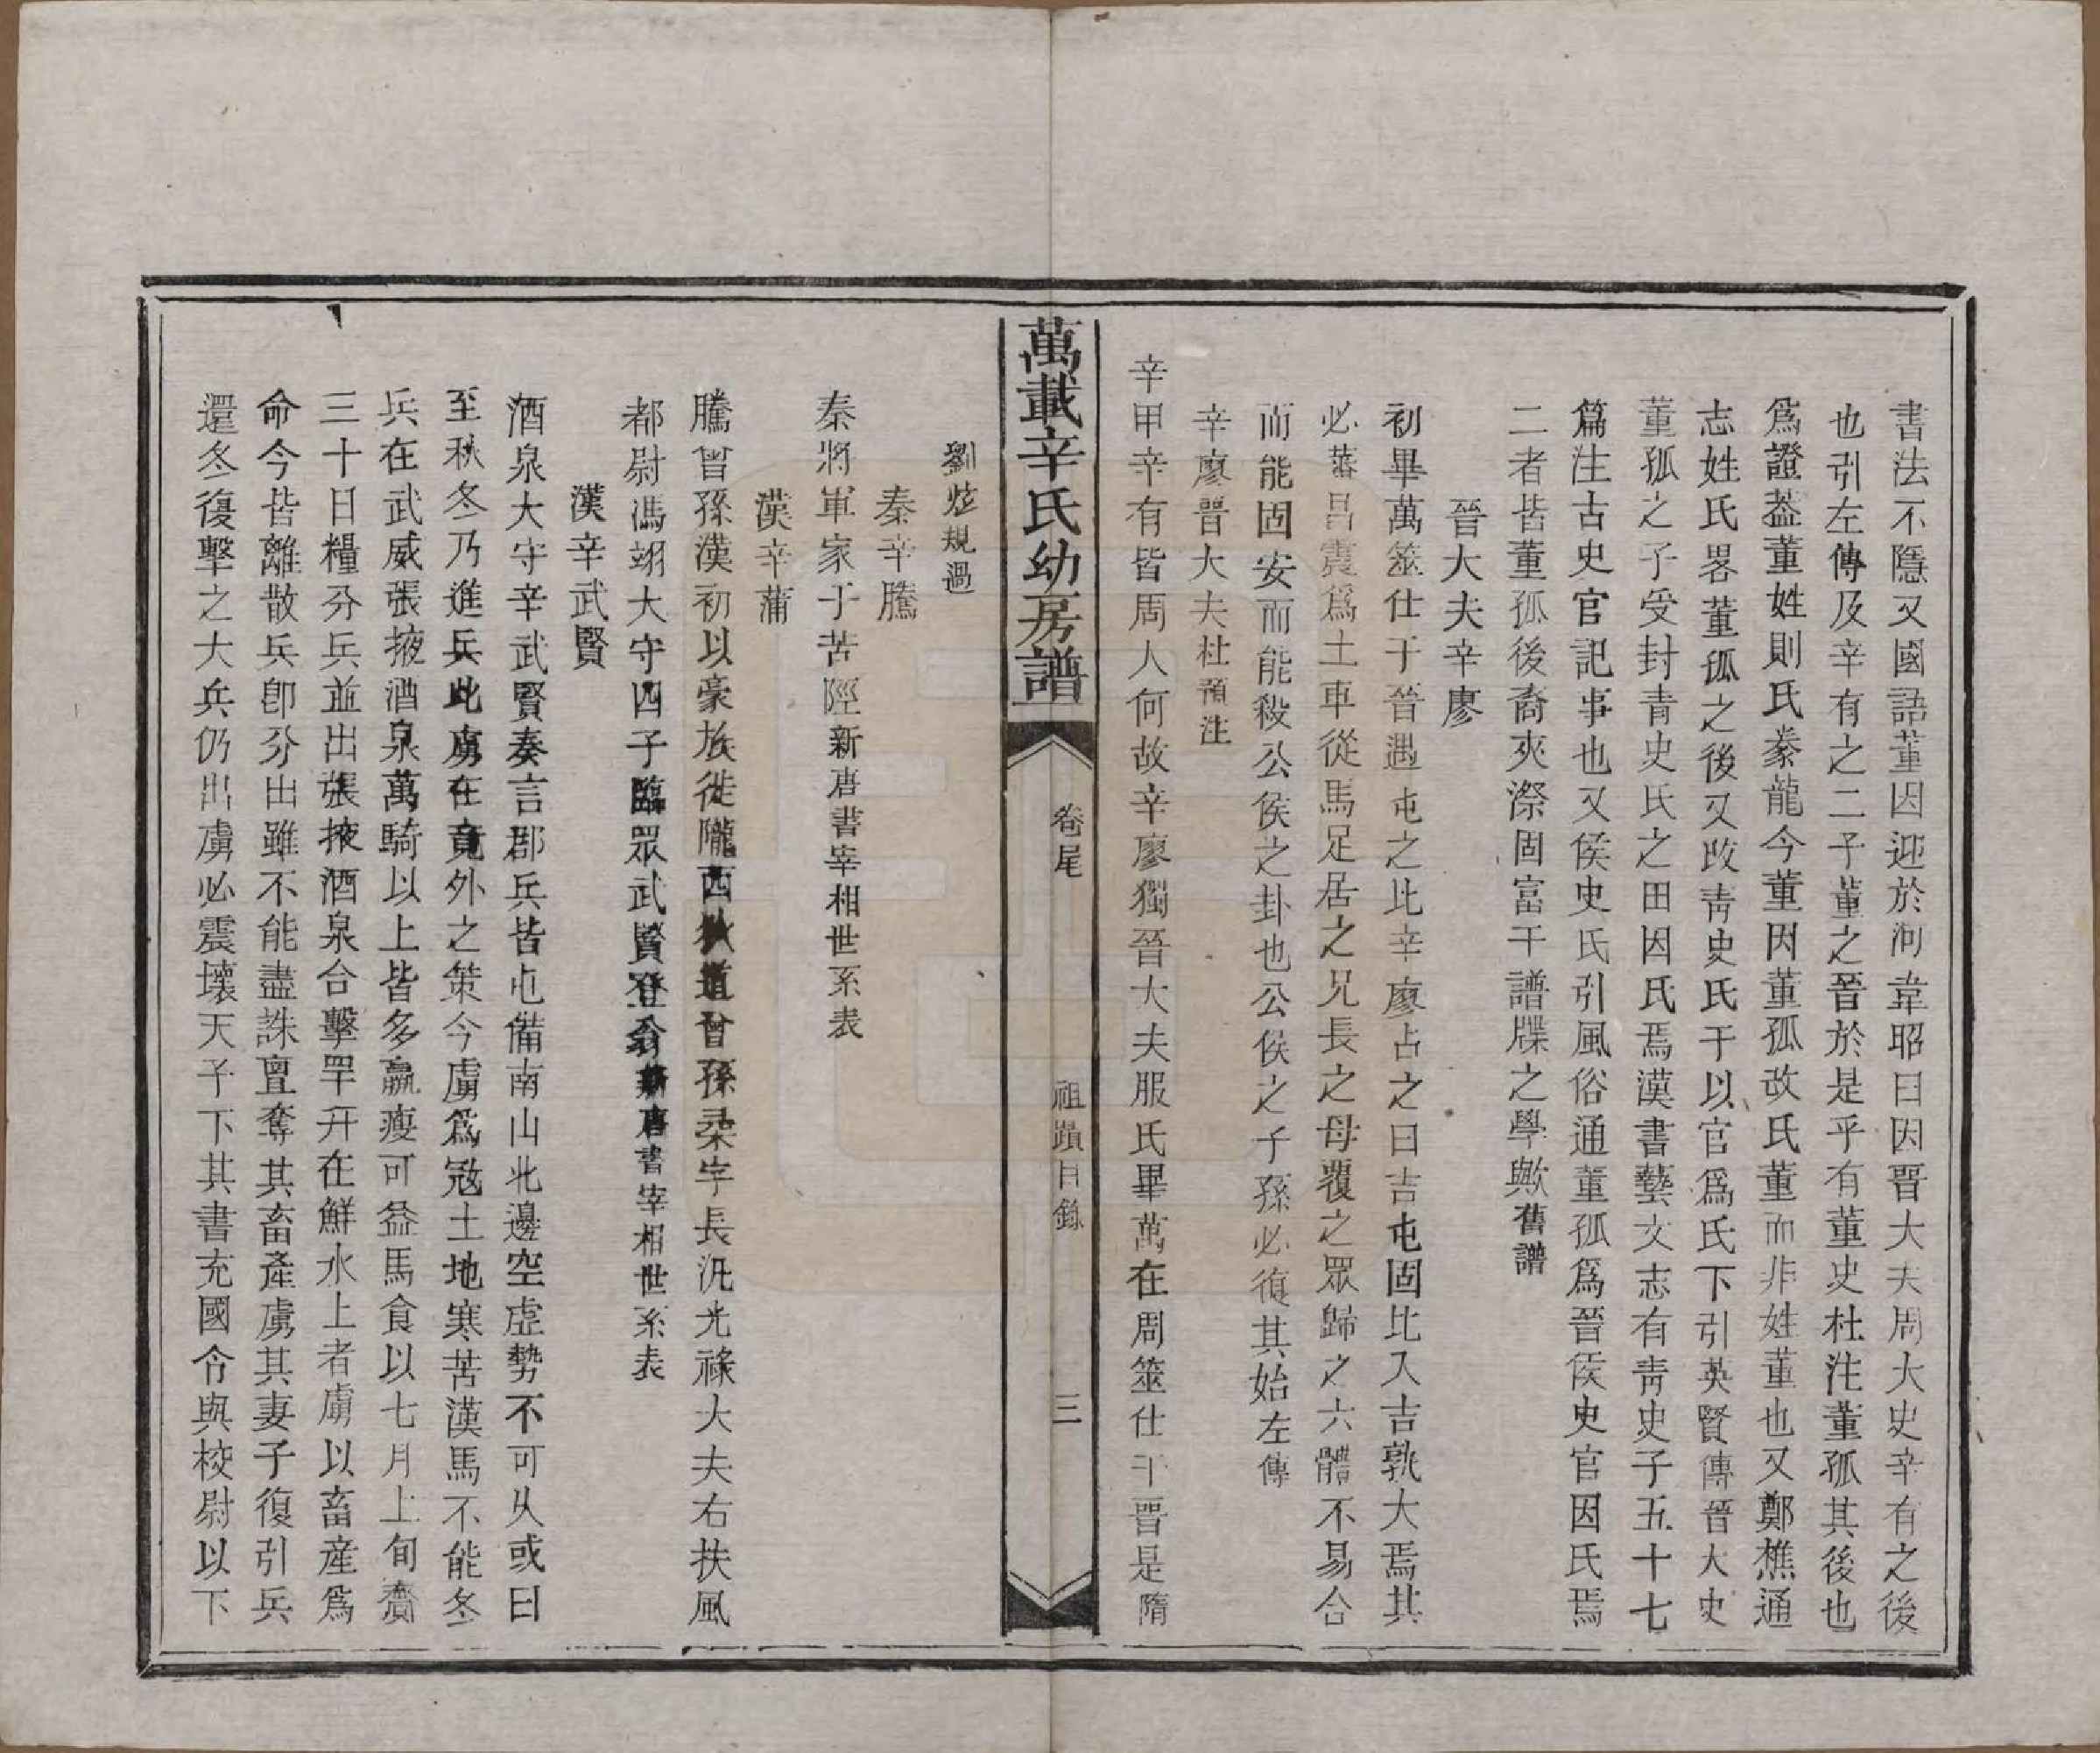 書法不隱又國語董因迎於河韋昭曰因晋大夫周大史辛有之後
也引左傳及辛有之二子董之晉於是乎有董史杜注董孤其後也
爲證葢董姓則氏豢龍今董因董孤改氏董而非姓董也又鄭樵通
志姓氏畧董孤之後又改靑史氏于以官爲氏下引英賢傳晉大史
董孤之子受封青史氏之田因氏焉漢書藝文志有靑史子五十七
篇注古史官記事也又侯史氏引風俗通董孤爲晉侯史官因氏焉
二者皆董孤後裔夾漈固富于譜牒之學歟舊譜
晉大夫辛廖
初畢萬筮仕于晉遇屯之比辛廖占之曰吉屯固比入吉孰大焉其
必蕃昌震爲土車從馬足居之兄長之母覆之眾歸之六體不易合
而能固安而能殺公侯之卦也公侯之子孫必復其始左傳
辛廖晋大夫杜預注
辛甲辛有皆周人何故辛廖獨晉大夫服氏畢萬在周筮仕于晋是隋
萬載辛氏幼房譜
卷尾
祖蹟目錄
三
劉炫規過
秦辛騰
秦將軍家于苦陘新唐書宰相世系表
漢辛蒲
騰曾孫漢初以豪族徙隴西狄道曾孫柔字長汎光祿大夫右扶風
都尉馮翊大守四子臨眾武賢登翁新唐書宰相世系表
漢辛武賢
酒泉大守辛武賢奏言郡兵皆屯備南山北邊空虛勢不可久或曰
至秋冬乃進兵此虜在竟外之策今虜爲冦土地寒苦漢馬不能冬
兵在武威張掖酒泉萬騎以上皆多羸瘦可益馬食以七月上旬齎
三十日糧分兵並出張掖酒泉合擊罕幵在鮮水上者虜以畜産爲
命今皆離散兵卽分出雖不能盡誅亶奪其畜產虜其妻子復引兵
還冬復擊之大兵仍出虜必震壞天子下其書充國令與校尉以下